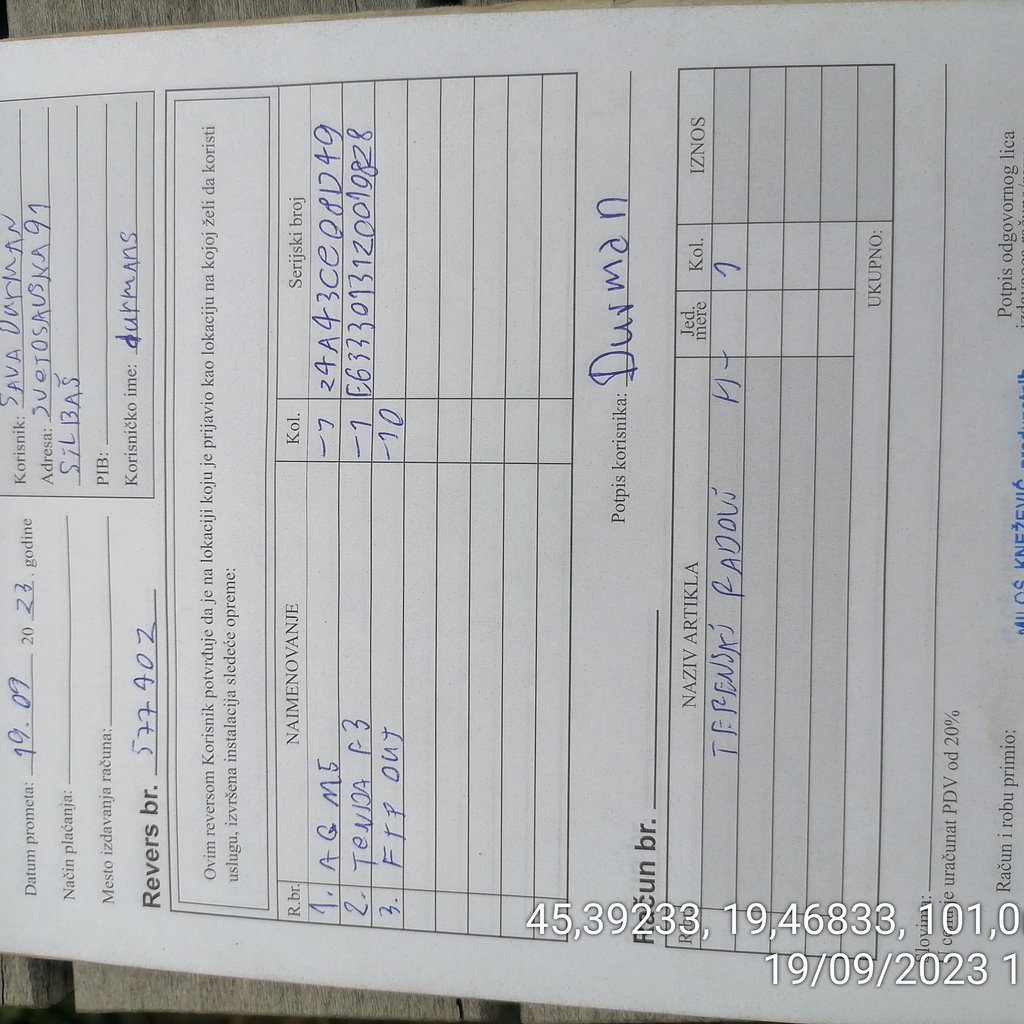 Datum prometa: 19.09 2023. godine
Način plaćanja:
Mesto izdavanja računa:
Korisnik: SAVA DURMAN
Adresa: SVETOSAVSKA 91
SILBAŠ
PIB:
Korisničko ime: durmans
Revers br. 577402
Ovim reversom Korisnik potvrđuje da je na lokaciji koju je prijavio kao lokaciju na kojoj želi da koristi
uslugu, izvršena instalacija sledeće opreme:
R.br. NAIMENOVANJE Kol. Serijski broj
1. AG M5 -1 24A43CE08D49
2. TENDA F3 -1 E6333013120019828
3. FTP OUT -10
Potpis korisnika: Durman
Račun br.
NAZIV ARTIKLA Jed. mere Kol. IZNOS
TERENSKI RADOVI H- 1
UKUPNO:
Slovima:
U cenu je uračunat PDV od 20%
Račun i robu primio:
Potpis odgovornog lica
MILOŠ KNEŽEVIĆ
45,39233, 19,46833, 101,0
19/09/2023 1